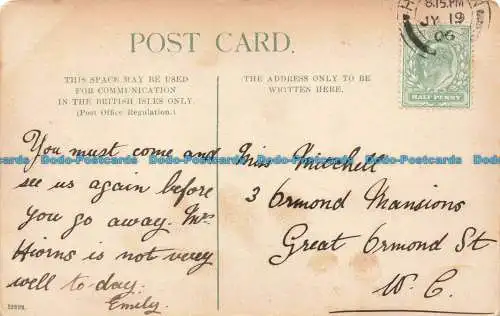 8.15.PM
JY 19
06
POST CARD.
THIS SPACE MAY BE USED
FOR COMMUNICATION
IN THE BRITISH ISLES ONLY.
(Post Office Regulation.)
THE ADDRESS ONLY TO BE
WRITTEN HERE.
HALF PENNY
You must come and
see us again before
you go away. Mrs
Hiorns is not very
well to-day.
Emily.
Miss Mitchell
3 Ormond Mansions
Great Ormond St
W. C.
Dodo-Postcards Dodo-Postcards Dodo-Postcards Dodo-Postcards Dodo-Postcards